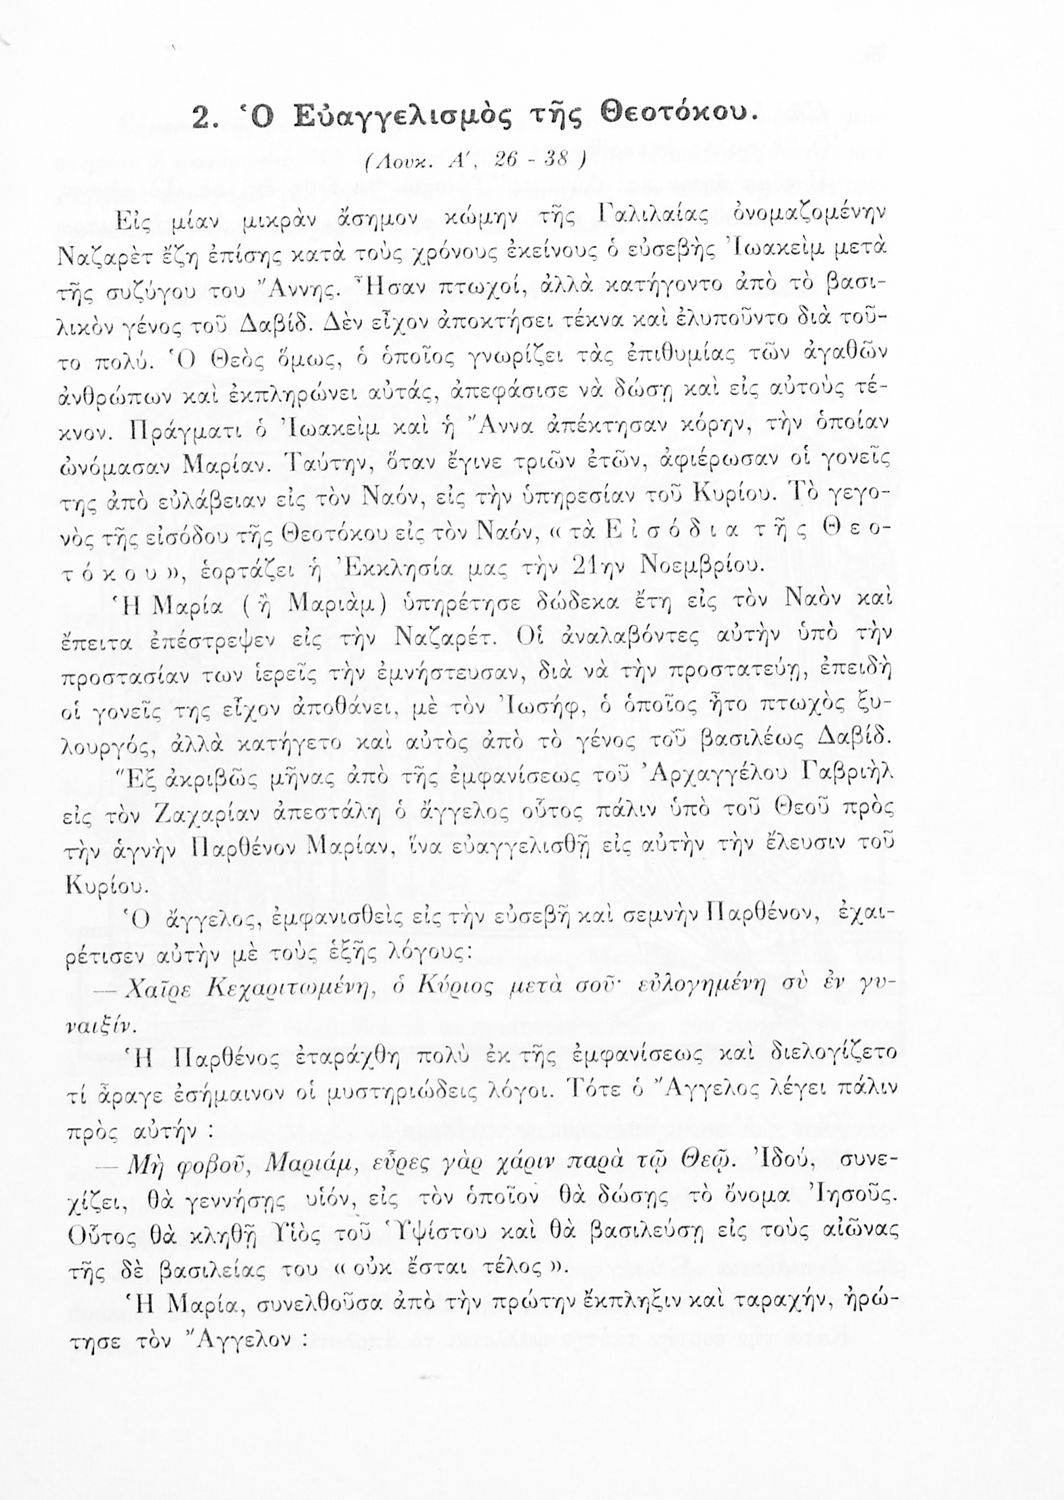 2. Ὁ Εὐαγγελισμὸς τῆς Θεοτόκου.
(Λουκ. Α', 26 - 38 )
Εἰς μίαν μικρὰν ἄσημον κώμην τῆς Γαλιλαίας ὀνομαζομένην
Ναζαρὲτ ἔζη ἐπίσης κατὰ τοὺς χρόνους ἐκείνους ὁ εὐσεβὴς Ἰωακεὶμ μετὰ
τῆς συζύγου του Ἄννης. Ἦσαν πτωχοί, ἀλλὰ κατήγοντο ἀπὸ τὸ βασι-
λικὸν γένος τοῦ Δαβίδ. Δὲν εἶχον ἀποκτήσει τέκνα καὶ ἐλυποῦντο διὰ τοῦ-
το πολύ. Ὁ Θεὸς ὅμως, ὁ ὁποῖος γνωρίζει τὰς ἐπιθυμίας τῶν ἀγαθῶν
ἀνθρώπων καὶ ἐκπληρώνει αὐτάς, ἀπεφάσισε νὰ δώσῃ καὶ εἰς αὐτοὺς τέ-
κνον. Πράγματι ὁ Ἰωακεὶμ καὶ ἡ Ἄννα ἀπέκτησαν κόρην, τὴν ὁποίαν
ὠνόμασαν Μαρίαν. Ταύτην, ὅταν ἔγινε τριῶν ἐτῶν, ἀφιέρωσαν οἱ γονεῖς
της ἀπὸ εὐλάβειαν εἰς τὸν Ναόν, εἰς τὴν ὑπηρεσίαν τοῦ Κυρίου. Τὸ γεγο-
νὸς τῆς εἰσόδου τῆς Θεοτόκου εἰς τὸν Ναόν, « τὰ Ε ἰ σ ό δ ι α τ ῆ ς Θ ε ο-
τ ό κ ο υ », ἑορτάζει ἡ Ἐκκλησία μας τὴν 21ην Νοεμβρίου.
Ἡ Μαρία ( ἢ Μαριὰμ) ὑπηρέτησε δώδεκα ἔτη εἰς τὸν Ναὸν καὶ
ἔπειτα ἐπέστρεψεν εἰς τὴν Ναζαρέτ. Οἱ ἀναλαβόντες αὐτὴν ὑπὸ τὴν
προστασίαν των ἱερεῖς τὴν ἐμνήστευσαν, διὰ νὰ τὴν προστατεύῃ, ἐπειδὴ
οἱ γονεῖς της εἶχον ἀποθάνει, μὲ τὸν Ἰωσήφ, ὁ ὁποῖος ἦτο πτωχὸς ξυ-
λουργός, ἀλλὰ κατήγετο καὶ αὐτὸς ἀπὸ τὸ γένος τοῦ βασιλέως Δαβίδ.
Ἓξ ἀκριβῶς μῆνας ἀπὸ τῆς ἐμφανίσεως τοῦ Ἀρχαγγέλου Γαβριὴλ
εἰς τὸν Ζαχαρίαν ἀπεστάλη ὁ ἄγγελος οὗτος πάλιν ὑπὸ τοῦ Θεοῦ πρὸς
τὴν ἁγνὴν Παρθένον Μαρίαν, ἵνα εὐαγγελισθῇ εἰς αὐτὴν τὴν ἔλευσιν τοῦ
Κυρίου.
Ὁ ἄγγελος, ἐμφανισθεὶς εἰς τὴν εὐσεβῆ καὶ σεμνὴν Παρθένον, ἐχαι-
ρέτισεν αὐτὴν μὲ τοὺς ἑξῆς λόγους:
— Χαῖρε Κεχαριτωμένη, ὁ Κύριος μετὰ σοῦ· εὐλογημένη σὺ ἐν γυ-
ναιξίν.
Ἡ Παρθένος ἐταράχθη πολὺ ἐκ τῆς ἐμφανίσεως καὶ διελογίζετο
τί ἆραγε ἐσήμαινον οἱ μυστηριώδεις λόγοι. Τότε ὁ Ἄγγελος λέγει πάλιν
πρὸς αὐτήν :
— Μὴ φοβοῦ, Μαριάμ, εὗρες γὰρ χάριν παρὰ τῷ Θεῷ. Ἰδού, συνε-
χίζει, θὰ γεννήσῃς υἱόν, εἰς τὸν ὁποῖον θὰ δώσῃς τὸ ὄνομα Ἰησοῦς.
Οὗτος θὰ κληθῇ Υἱὸς τοῦ Ὑψίστου καὶ θὰ βασιλεύσῃ εἰς τοὺς αἰῶνας
τῆς δὲ βασιλείας του « οὐκ ἔσται τέλος ».
Ἡ Μαρία, συνελθοῦσα ἀπὸ τὴν πρώτην ἔκπληξιν καὶ ταραχήν, ἠρώ-
τησε τὸν Ἄγγελον :